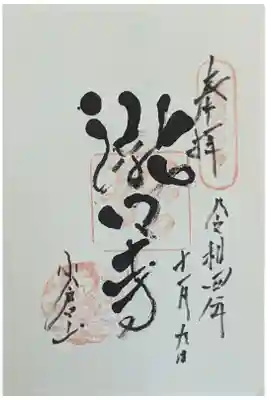 奉拝
令和四年
十一月九日
滝口寺
小倉山